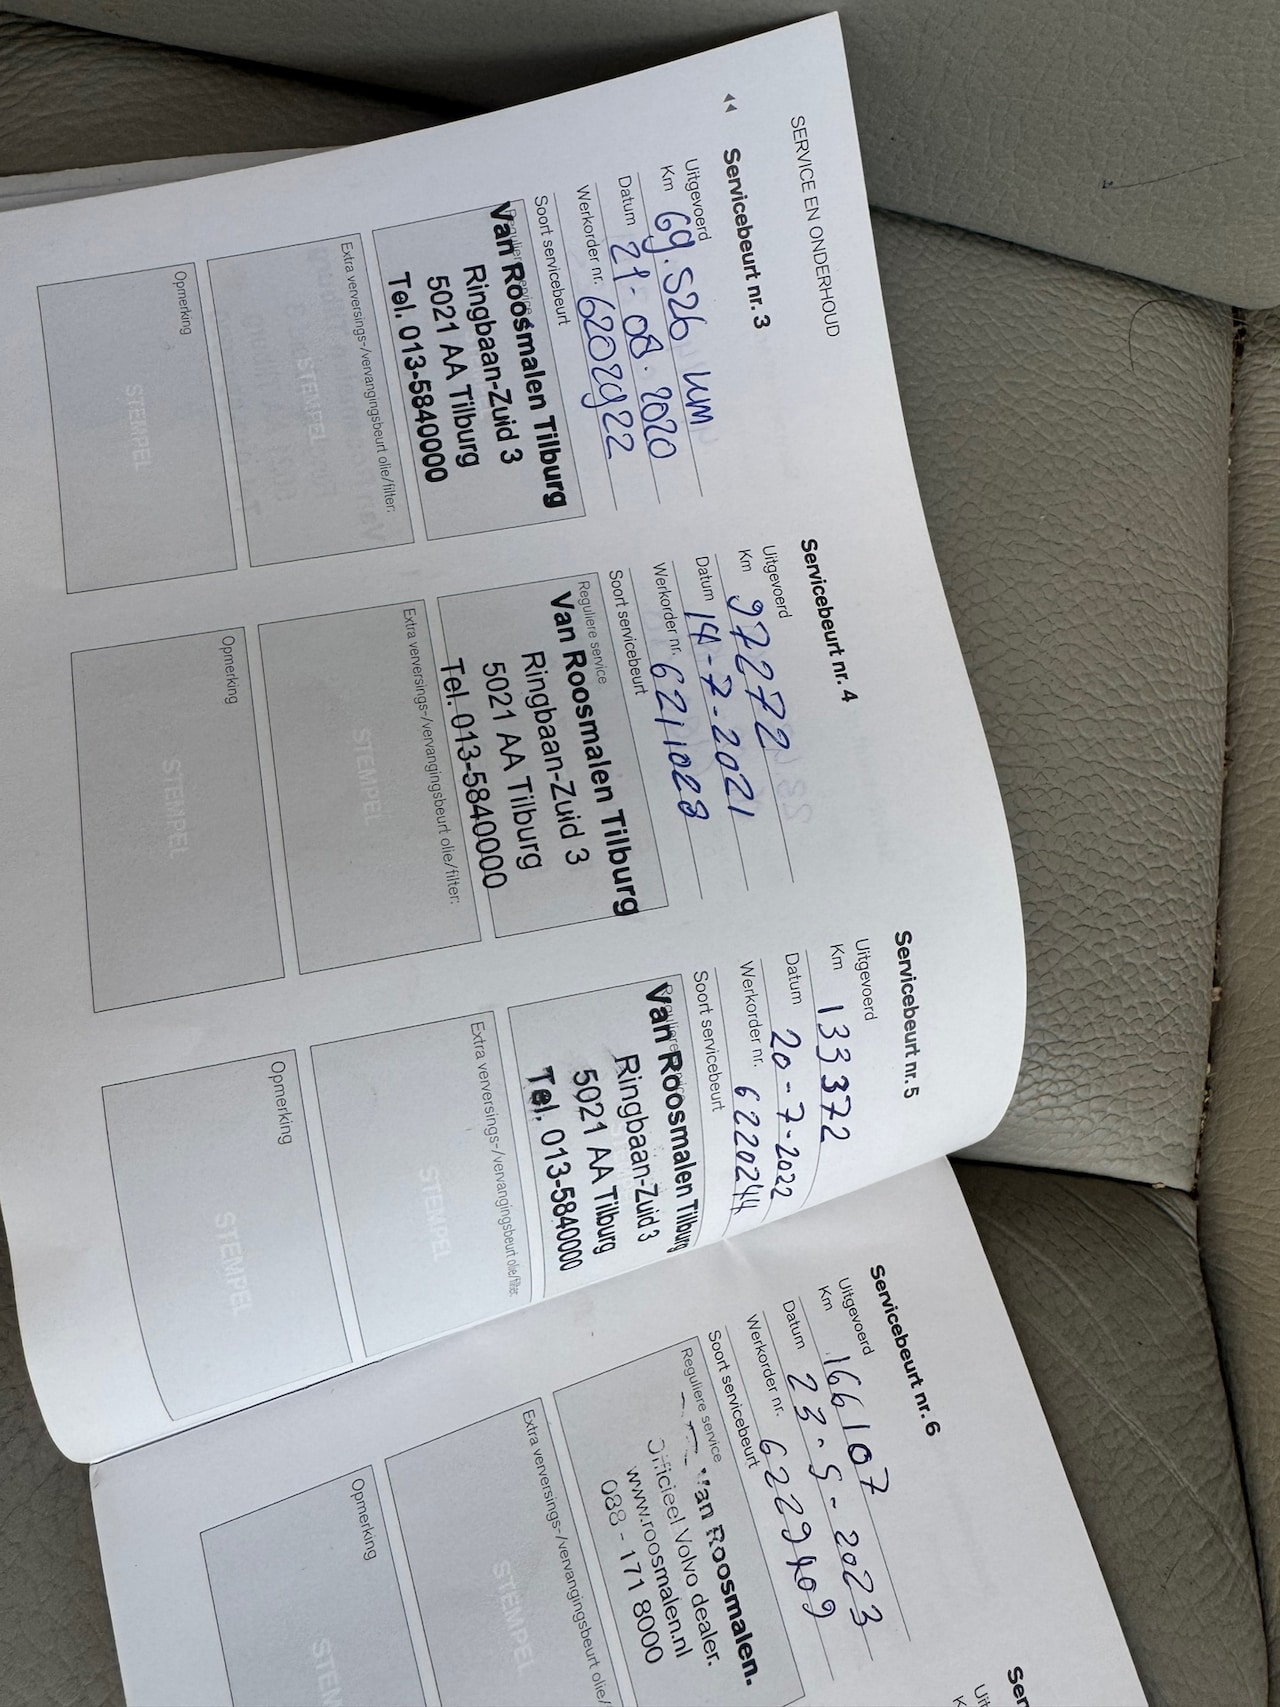 SERVICE EN ONDERHOUD
Servicebeurt nr. 3
Uitgevoerd
Km 69.526 km
Datum 21-08-2020
Werkorder nr. 6202922
Soort servicebeurt
Reguliere service
Van Roosmalen Tilburg
Ringbaan-Zuid 3
5021 AA Tilburg
Tel. 013-5840000
Extra verversings-/vervangingsbeurt olie/filter:
STEMPEL
Opmerking
STEMPEL
Servicebeurt nr. 4
Uitgevoerd
Km 97272
Datum 14-7-2021
Werkorder nr. 6211028
Soort servicebeurt
Reguliere service
Van Roosmalen Tilburg
Ringbaan-Zuid 3
5021 AA Tilburg
Tel. 013-5840000
Extra verversings-/vervangingsbeurt olie/filter:
STEMPEL
Opmerking
STEMPEL
Servicebeurt nr. 5
Uitgevoerd
Km 133372
Datum 20-7-2022
Werkorder nr. 6220244
Soort servicebeurt
Reguliere service
Van Roosmalen Tilburg
Ringbaan-Zuid 3
5021 AA Tilburg
Tel. 013-5840000
Extra verversings-/vervangingsbeurt olie/filter:
STEMPEL
Opmerking
STEMPEL
Servicebeurt nr. 6
Uitgevoerd
Km 166107
Datum 23-5-2023
Werkorder nr. 6229409
Soort servicebeurt
Reguliere service
Van Roosmalen.
Officieel Volvo dealer.
www.roosmalen.nl
088 - 171 8000
Extra verversings-/vervangingsbeurt olie/
STEMPEL
Opmerking
STEM
Ser
Uit
K